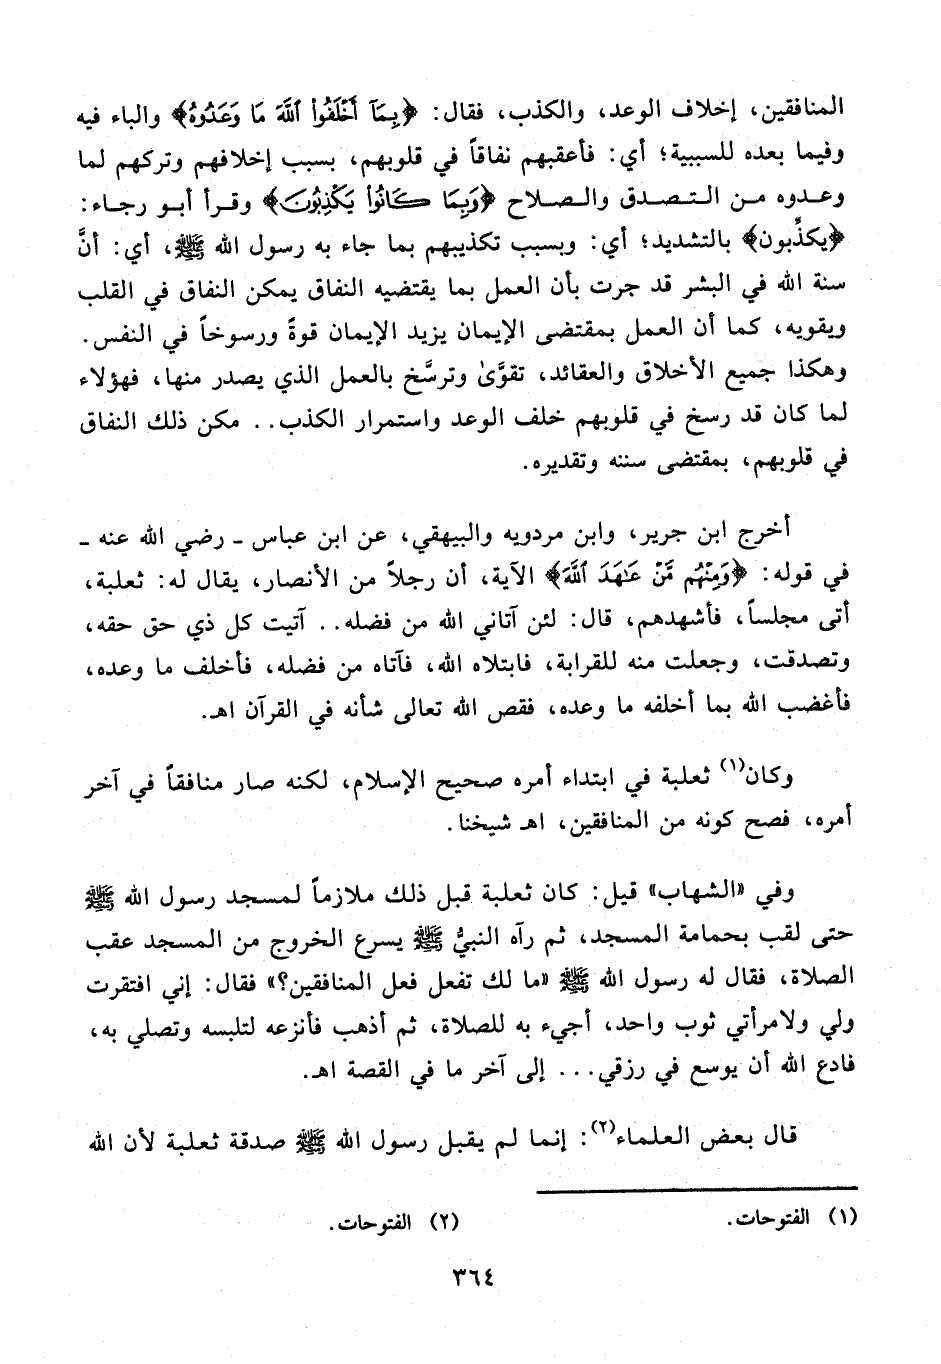 المنافقين، إخلاف الوعد، والكذب، فقال: ﴿بِمَآ أَخْلَفُوا۟ ٱللَّهَ مَا وَعَدُوهُ﴾ والباء فيه
وفيما بعده للسببية؛ أي: فأعقبهم نفاقاً في قلوبهم، بسبب إخلافهم وتركهم لما
وعدوه من التصدق والصلاح ﴿وَبِمَا كَانُوا۟ يَكْذِبُونَ﴾ وقرأ أبو رجاء:
﴿يكذِّبون﴾ بالتشديد؛ أي: وبسبب تكذيبهم بما جاء به رسول الله ﷺ، أي: أنَّ
سنة الله في البشر قد جرت بأن العمل بما يقتضيه النفاق يمكن النفاق في القلب
ويقويه، كما أن العمل بمقتضى الإيمان يزيد الإيمان قوةً ورسوخاً في النفس.
وهكذا جميع الأخلاق والعقائد، تقوَّىٰ وترسَّخ بالعمل الذي يصدر منها، فهؤلاء
لما كان قد رسخ في قلوبهم خلف الوعد واستمرار الكذب.. مكن ذلك النفاق
في قلوبهم، بمقتضى سننه وتقديره.
أخرج ابن جرير، وابن مردويه والبيهقي، عن ابن عباس ـ رضي الله عنه ـ
في قوله: ﴿وَمِنْهُم مَّنْ عَٰهَدَ ٱللَّهَ﴾ الآية، أن رجلاً من الأنصار، يقال له: ثعلبة،
أتى مجلساً، فأشهدهم، قال: لئن آتاني الله من فضله.. آتيت كل ذي حق حقه،
وتصدقت، وجعلت منه للقرابة، فابتلاه الله، فآتاه من فضله، فأخلف ما وعده،
فأغضب الله بما أخلفه ما وعده، فقص الله تعالى شأنه في القرآن اهـ.
وكان(١) ثعلبة في ابتداء أمره صحيح الإسلام، لكنه صار منافقاً في آخر
أمره، فصح كونه من المنافقين، اهـ شيخنا.
وفي «الشهاب» قيل: كان ثعلبة قبل ذلك ملازماً لمسجد رسول الله ﷺ
حتى لقب بحمامة المسجد، ثم رآه النبيُّ ﷺ يسرع الخروج من المسجد عقب
الصلاة، فقال له رسول الله ﷺ «ما لك تفعل فعل المنافقين؟» فقال: إني افتقرت
ولي ولامرأتي ثوب واحد، أجيء به للصلاة، ثم أذهب فأنزعه لتلبسه وتصلي به،
فادع الله أن يوسع في رزقي... إلى آخر ما في القصة اهـ.
قال بعض العلماء(٢): إنما لم يقبل رسول الله ﷺ صدقة ثعلبة لأن الله
(١) الفتوحات. (٢) الفتوحات.
٣٦٤